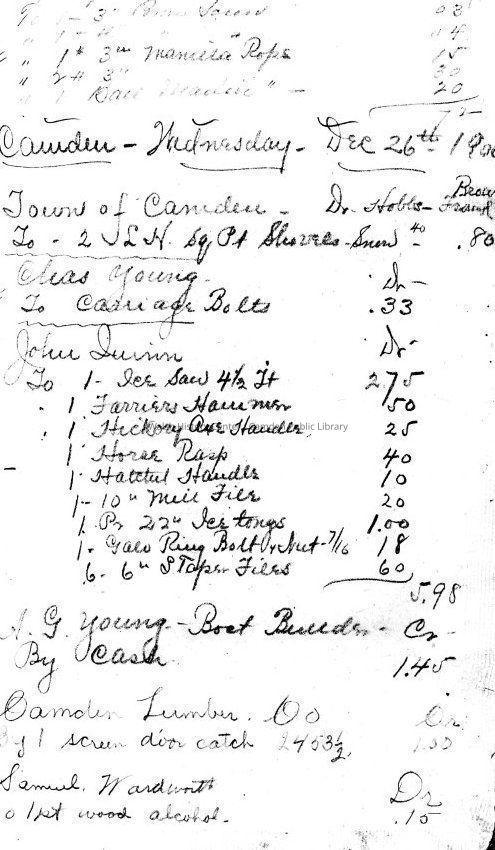 To 1 - 3" Brass Screw 03
" 1 - 4 " " 04
" 1# 3" Manilla Rope 15
" 2# 3" 30
" 1 Ball " - 20
Camden - Wednesday - Dec 26th - 1900
Town of Camden - Dr. Hobbs - Brown Frank
To - 2 L H. Sq Pt Shovels - Snow 40 - .80
Chas Young - Dr -
To Carriage Bolts .33
John Quinn Dr -
To 1 - Ice Saw 4 1/2 ft 2.75
" 1 Farriers Hammer 50
" 1 Hickory Axe Handle 25
1 Horse Rasp 40
1 Hatchet Handle 10
1 - 10" Mill File 20
1 Pr 22" Ice tongs 1.00
1 - Galv Ring Bolt & Nut - 7/16 18
6 - 6" S Taper Files 60
5.98
A. G. Young - Boat Builder - Cr -
By Cash 1.45
Camden Lumber. Co Cr
By 1 screen door catch 2453 1/2 1.00
Samuel Wardworth Dr
o 1 pt wood alcohol. .15
History Center Public Library